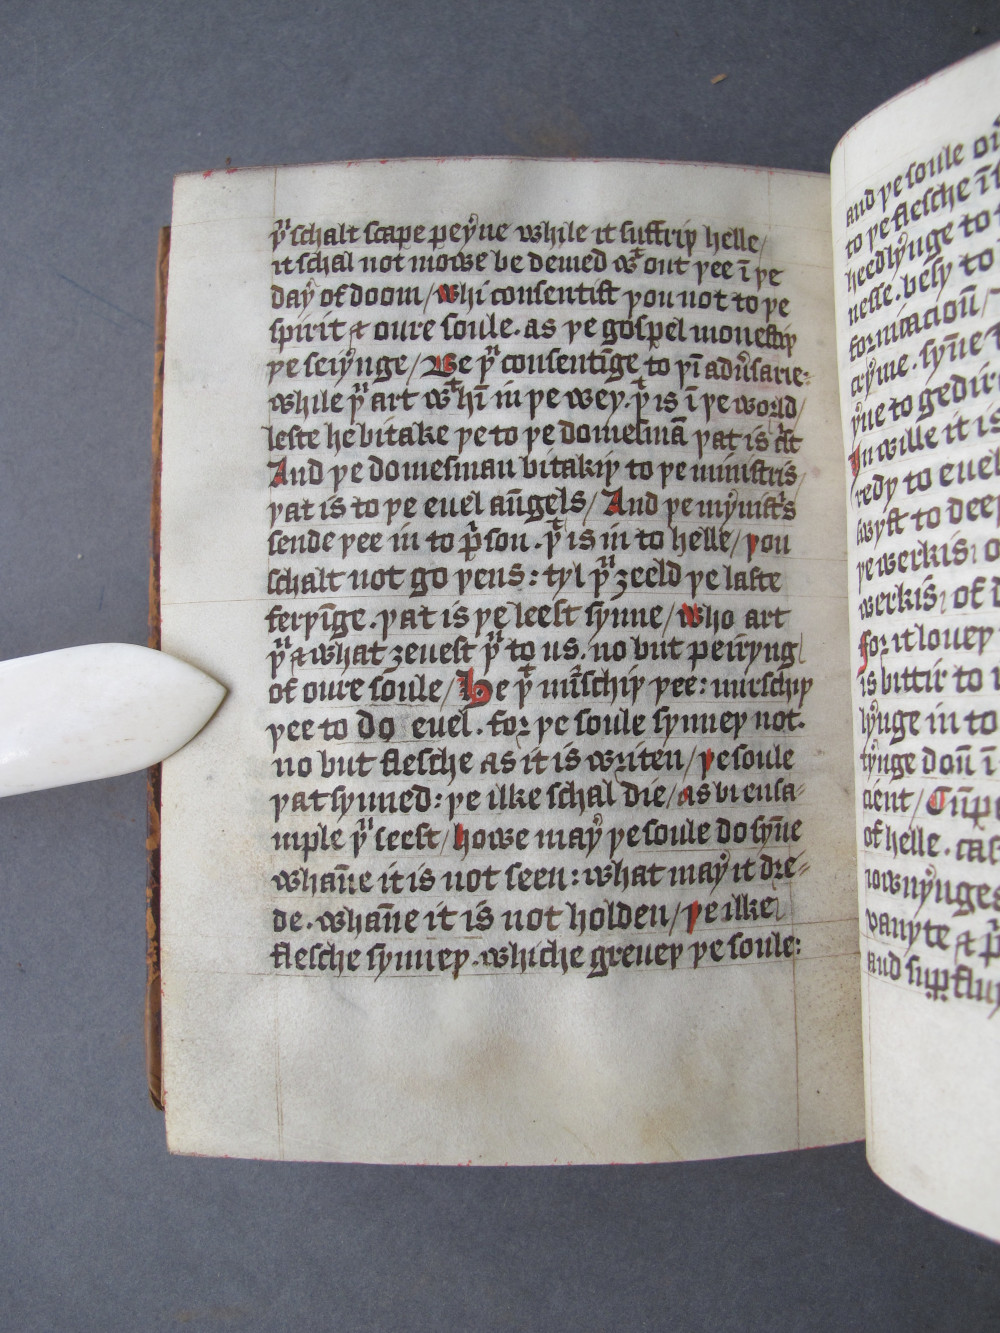 þᵘ schalt scape peẏne while it suffriþ helle/
it schal not mowe be demed wᵗ out þee ī þe
daẏ of doom/ whi consentist þou not to þe
spirit ⁊ oure soule. as þe gospel monestiþ
þe seiẏnge/ Be þᵘ consentīge to þī adūsarie:
while þᵘ art wᵗ hī in þe wey. þᵗ is ī þe world/
leste he bitake þe to þe domesmā þat is c̄st
And þe domesman bitakiþ to þe ministris/
þat is to þe euel aūgels/ And þe mẏnistˢs
sende þee in to p̄son. þᵗ is in to helle/ þou
schalt not go þens: tyl þᵘ ȝeeld þe laste
ferþīge. þat is þe leest synne/ who art
þᵘ ⁊ what ȝeuest þᵘ to us. no but peiryng
of oure soule/ He þᵗ nūschiþ þee: nurschiþ
þee to do euel. for þe soule synneþ not.
no but flesche as it is writen/ þe soule
þat synned: þe ilke schal die/ as bi ensa-
mple þᵘ seest/ howe maẏ þe soule do sẏn̄e
whan̄e it is not seen: what maẏ it dre-
de. whan̄e it is not holden/ þe ilke
flesche synneþ. whiche greueþ þe soule:
and þe soule
to þe flesche
heedlẏnge to
nesse. besy to
fornicacioun̄/
crẏme. syn̄e
ẏne to gedir
In wille it is
redy to euel
swyft to
þe werkis:
werkis: of
for it loueþ
is bittir to
lẏnge in to
tẏnge doun̄
cient/
of helle.
vanyte ⁊
and